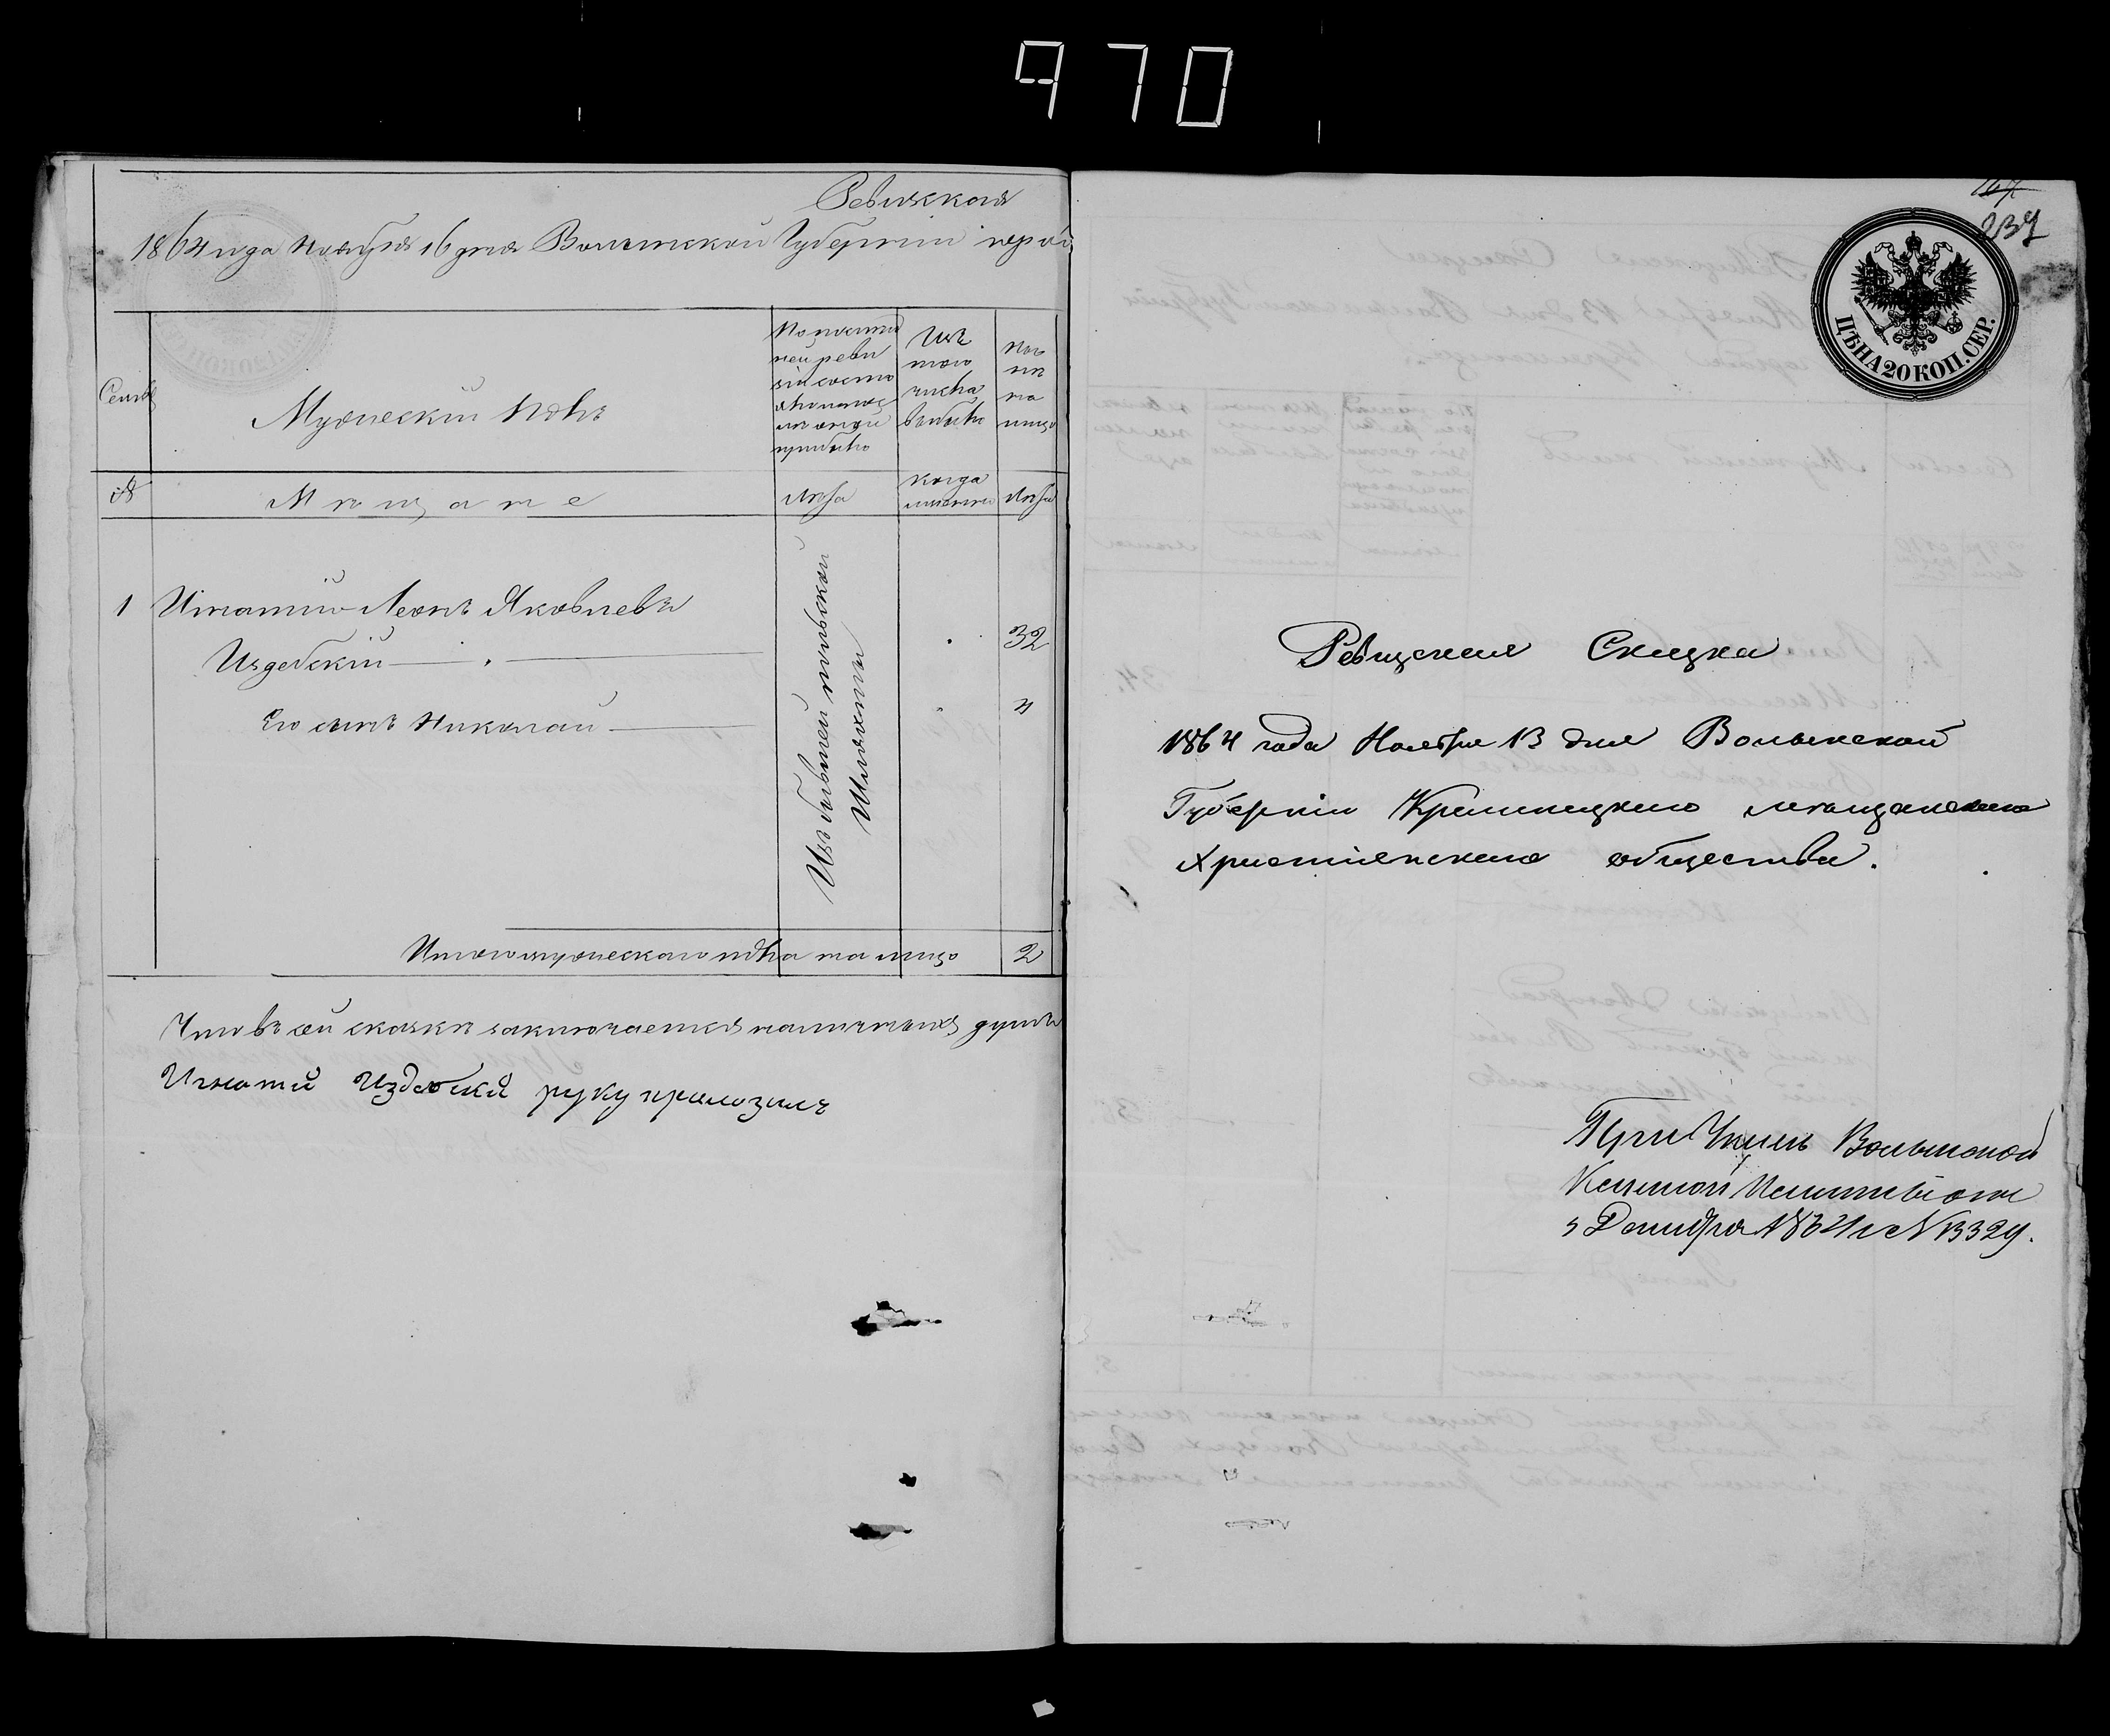 970
Ревизская
1864 года Ноября 16 дня Волынской Губернии
Семьи
Мужескій полъ
По последней ревизіи состояло и после оной прибыло
Изъ того числа выбыло
Ныне на лицо
№
Мѣщане
Лѣта
Когда именно
Лѣта
1 Игнатій Леонъ Яковлевъ
Издебскій
32
Его сынъ Николай
4
Изъ бывшей польской
Шляхты
Итого мужескаго пола на лицо 2
Что въ сей сказке заключается наличныхъ душъ
Игнатій Издебскій руку приложилъ
237
ЦѢНА 20 КОП. СЕР.
Ревизская Сказка
1864 года Ноября 13 дня Волынской
Губерніи Кременецкаго мещанскаго
Христіянскаго общества.
При Указѣ Волынской
Казенной Палаты отъ
Декабря 1864 г № 13329.